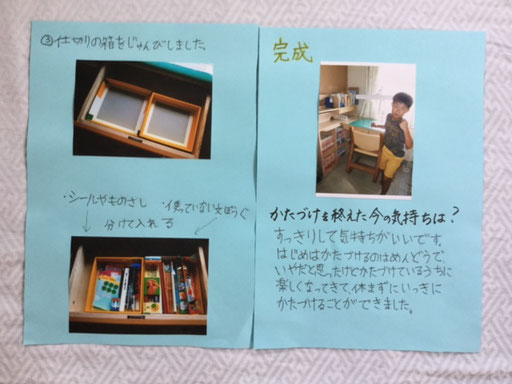 ③仕切りの箱をじゅんびしました。
・シールやものさし ・使っていない文ぼうぐ
分けて入れる
完成
かたづけを終えた今の気持ちは?
すっきりして気持ちがいいです。
はじめはかたづけるのはめんどうで、
いやだと思ったけどかたづけているうちに
楽しくなってきて、休まずにいっきに
かたづけることができました。